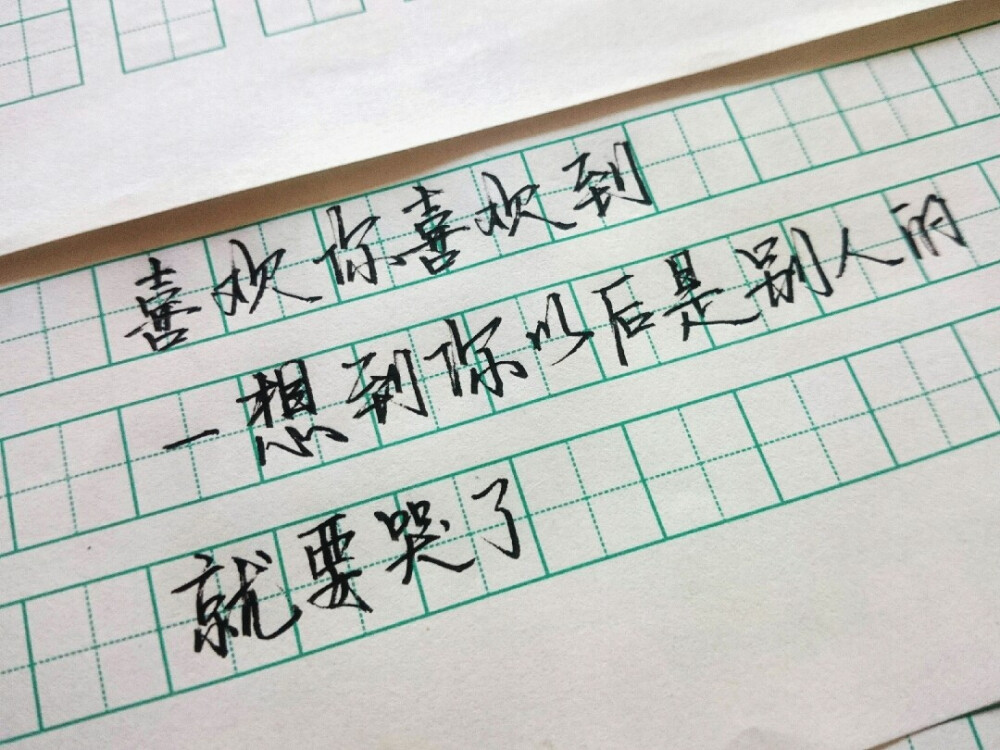 喜欢你喜欢到
一想到你以后是别人的
就要哭了